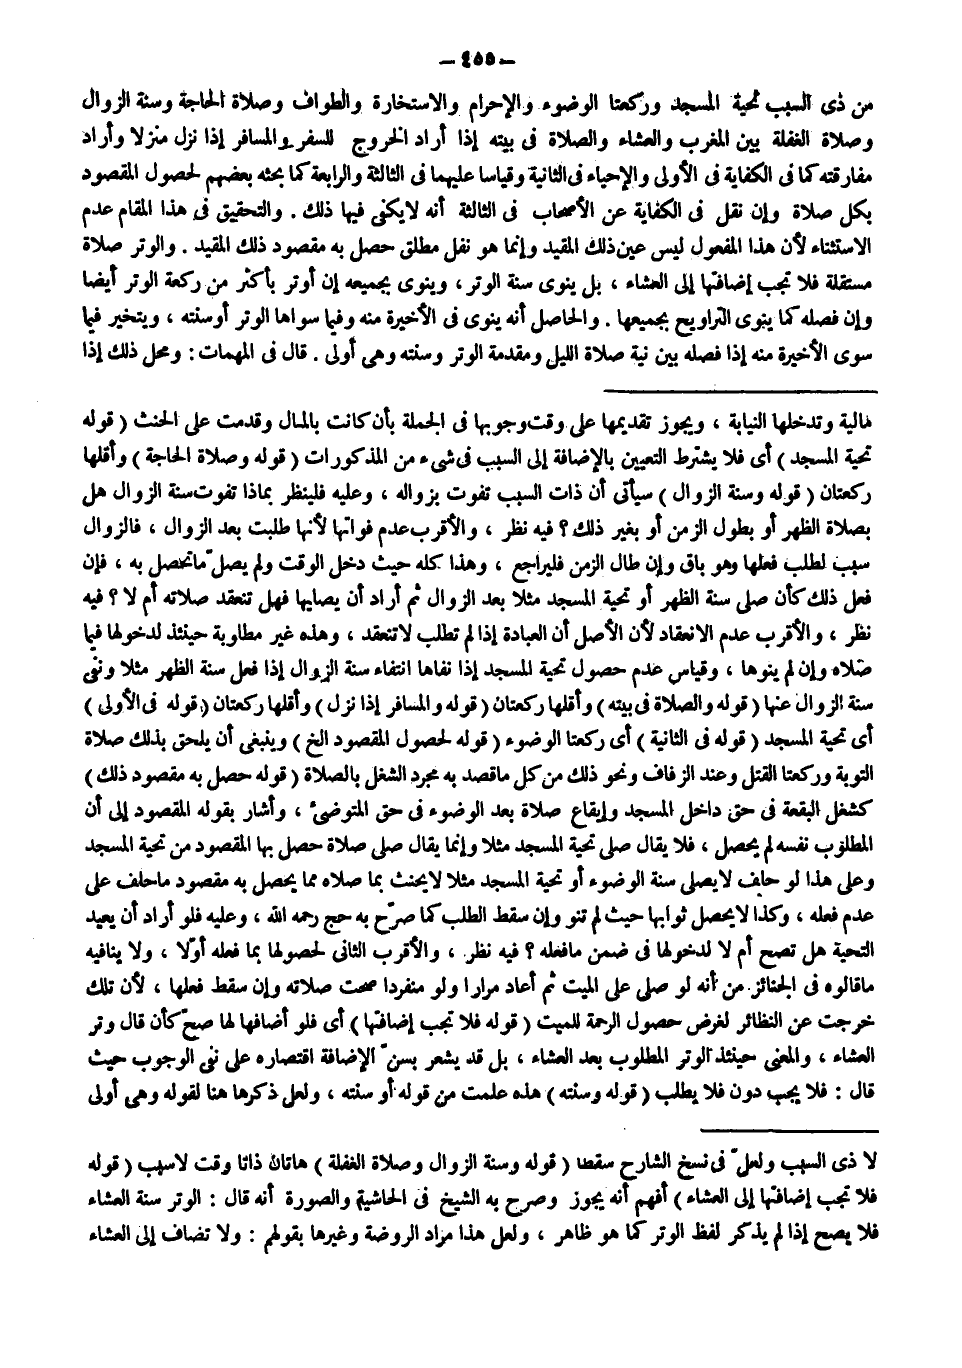 – ٤٥٥ –
من ذى السبب تحية المسجد وركعتا الوضوء والإحرام والاستخارة والطواف وصلاة الحاجة وسنة الزوال
وصلاة الغفلة بين المغرب والعشاء والصلاة فى بيته إذا أراد الخروج للسفر والمسافر إذا نزل منزلا وأراد
مفارقته كما فى الكفاية فى الأولى والإحياء فى الثانية وقياسا عليهما فى الثالثة والرابعة كما بحثه بعضهم لحصول المقصود
بكل صلاة وإن نقل فى الكفاية عن الأصحاب فى الثالثة أنه لا يكفى فيها ذلك . والتحقيق فى هذا المقام عدم
الاستثناء لأن هذا المفعول ليس عين ذلك المقيد وإنما هو نفل مطلق حصل به مقصود ذلك المقيد . والوتر صلاة
مستقلة فلا تجب إضافتها إلى العشاء ، بل ينوى سنة الوتر ، وينوى بجميعه إن أوتر بأكثر من ركعة الوتر أيضا
وإن فصله كما ينوى التراويح بجميعها . والحاصل أنه ينوى فى الأخيرة منه وفيما سواها الوتر أو سنته ، ويتخير فيما
سوى الأخيرة منه إذا فصله بين نية صلاة الليل ومقدمة الوتر وسنته وهى أولى . قال فى المهمات : ومحل ذلك إذا
مالية وتدخلها النيابة ، ويجوز تقديمها على وقت وجوبها فى الجملة بأن كانت بالمال وقدمت على الحنث ( قوله
تحية المسجد ) أى فلا يشترط التعيين بالإضافة إلى السبب فى شىء من المذكورات ( قوله وصلاة الحاجة ) وأقلها
ركعتان ( قوله وسنة الزوال ) سيأتى أن ذات السبب تفوت بزواله ، وعليه فلينظر بماذا تفوت سنة الزوال هل
بصلاة الظهر أو بطول الزمن أو بغير ذلك ؟ فيه نظر ، والأقرب عدم فواتها لأنها طلبت بعد الزوال ، فالزوال
سبب لطلب فعلها وهو باق وإن طال الزمن فليراجع ، وهذا كله حيث دخل الوقت ولم يصلّ ما تحصل به ، فإن
فعل ذلك كأن صلى سنة الظهر أو تحية المسجد مثلا بعد الزوال ثم أراد أن يصليها فهل تنعقد صلاته أم لا ؟ فيه
نظر ، والأقرب عدم الانعقاد لأن الأصل أن العبادة إذا لم تطلب لا تنعقد ، وهذه غير مطلوبة حينئذ لدخولها فيما
صلاه وإن لم ينوها ، وقياس عدم حصول تحية المسجد إذا نفاها انتفاء سنة الزوال إذا فعل سنة الظهر مثلا ونفى
سنة الزوال عنها ( قوله والصلاة فى بيته ) وأقلها ركعتان ( قوله والمسافر إذا نزل ) وأقلها ركعتان ( قوله فى الأولى )
أى تحية المسجد ( قوله فى الثانية ) أى ركعتا الوضوء ( قوله لحصول المقصود الخ ) وينبغى أن يلحق بذلك صلاة
التوبة وركعتا القتل وعند الزفاف ونحو ذلك من كل ما قصد به مجرد الشغل بالصلاة ( قوله حصل به مقصود ذلك )
كشغل البقعة فى حق داخل المسجد وإيقاع صلاة بعد الوضوء فى حق المتوضئ ، وأشار بقوله المقصود إلى أن
المطلوب نفسه لم يحصل ، فلا يقال صلى تحية المسجد مثلا وإنما يقال صلى صلاة حصل بها المقصود من تحية المسجد
وعلى هذا لو حلف لا يصلى سنة الوضوء أو تحية المسجد مثلا لا يحنث بما صلاه مما يحصل به مقصود ما حلف على
عدم فعله ، وكذا لا يحصل ثوابها حيث لم تنو وإن سقط الطلب كما صرّح به حج رحمه الله ، وعليه فلو أراد أن يعيد
التحية هل تصح أم لا لدخولها فى ضمن ما فعله ؟ فيه نظر . ، والأقرب الثانى لحصولها بما فعله أوّلا ، ولا ينافيه
ما قالوه فى الجنائز من أنه لو صلى على الميت ثم أعاد مرارا ولو منفردا صحت صلاته وإن سقط فعلها ، لأن تلك
خرجت عن النظائر لغرض حصول الرحمة للميت ( قوله فلا تجب إضافتها ) أى فلو أضافها لها صحّ كأن قال وتر
العشاء ، والمعنى حينئذ الوتر المطلوب بعد العشاء ، بل قد يشعر بسنّ الإضافة اقتصاره على نفى الوجوب حيث
قال : فلا يجب دون فلا يطلب ( قوله وسنته ) هذه علمت من قوله أو سنته ، ولعل ذكرها هنا لقوله وهى أولى
لا ذى السبب ولعلّ فى نسخ الشارح سقطا ( قوله وسنة الزوال وصلاة الغفلة ) هاتان ذاتا وقت لا سبب ( قوله
فلا تجب إضافتها إلى العشاء ) أفهم أنه يجوز وصرح به الشيخ فى الحاشية والصورة أنه قال : الوتر سنة العشاء
فلا يصح إذا لم يذكر لفظ الوتر كما هو ظاهر ، ولعل هذا مراد الروضة وغيرها بقولهم : ولا تضاف إلى العشاء